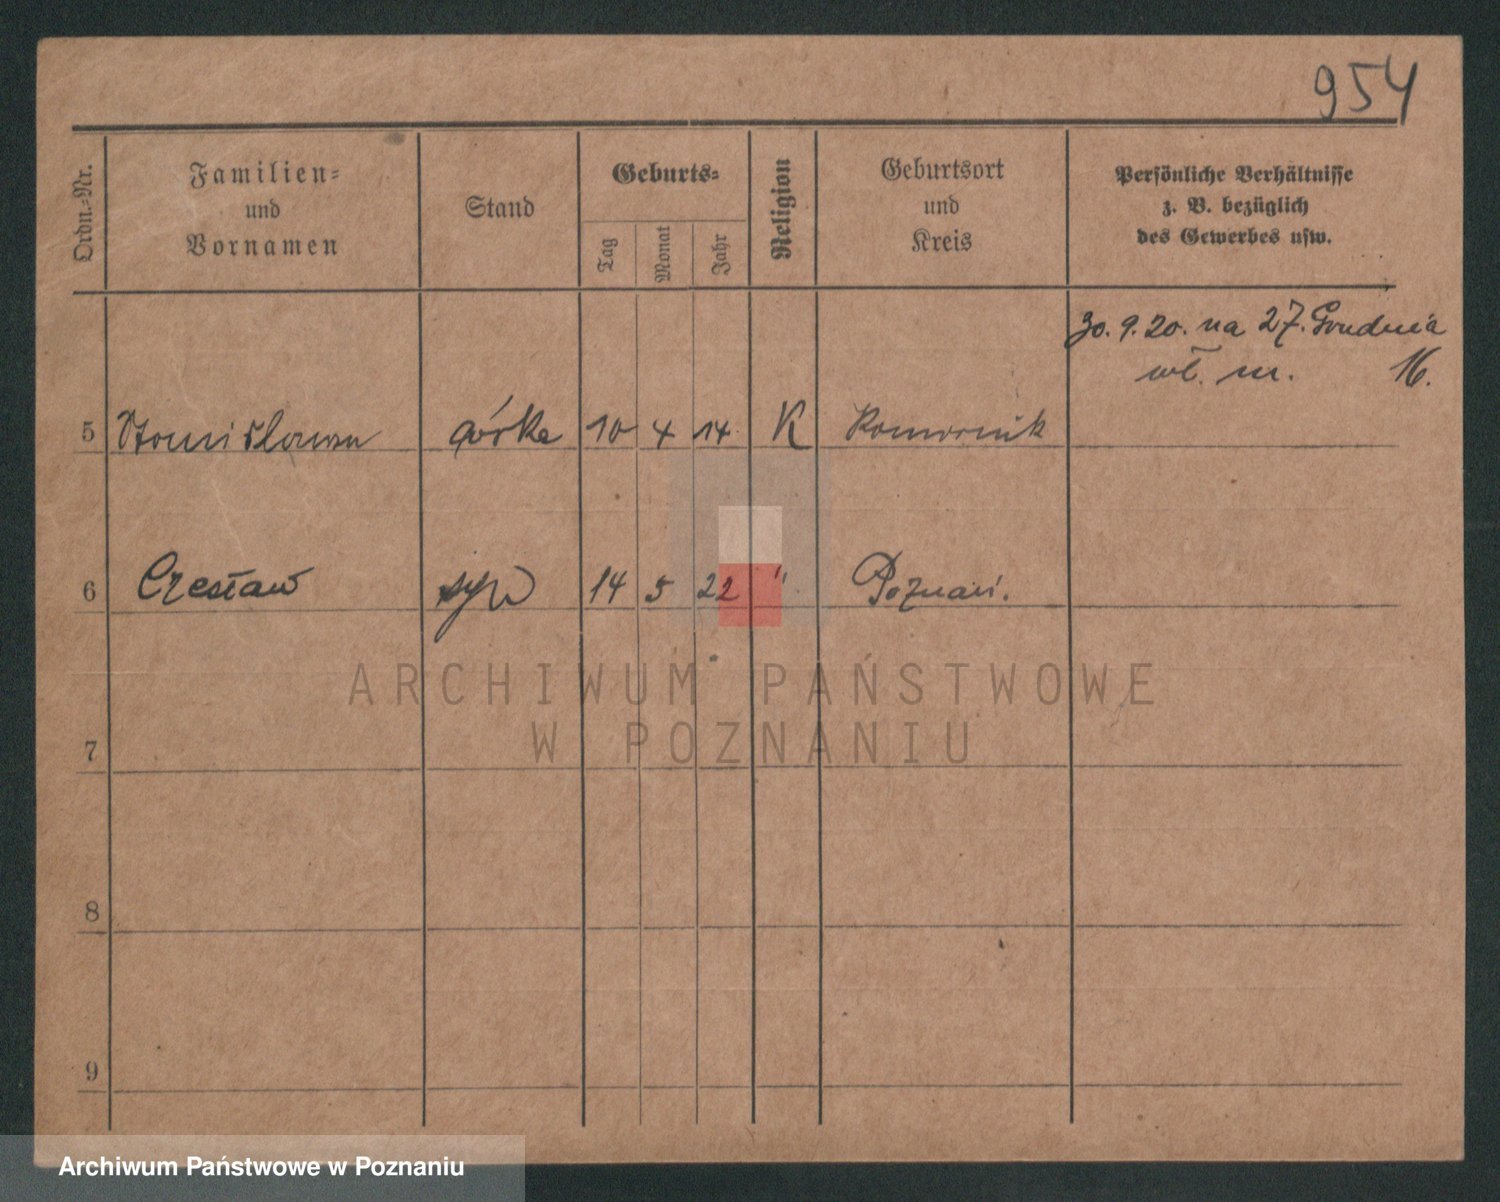 954
Ordn.-Nr.
Familien-
und
Vornamen
Stand
Geburts-
Tag
Monat
Jahr
Religion
Geburtsort
und
Kreis
Persönliche Verhältnisse
z. B. bezüglich
des Gewerbes usw.
30. 9. 20. na 27. Grudnia
wł. m. 16.
5 Stanisława córka 10 4 14 K Komornik
6 Czesław syn 14 5 22 " Poznań.
7
8
9
ARCHIWUM PAŃSTWOWE
W POZNANIU
Archiwum Państwowe w Poznaniu